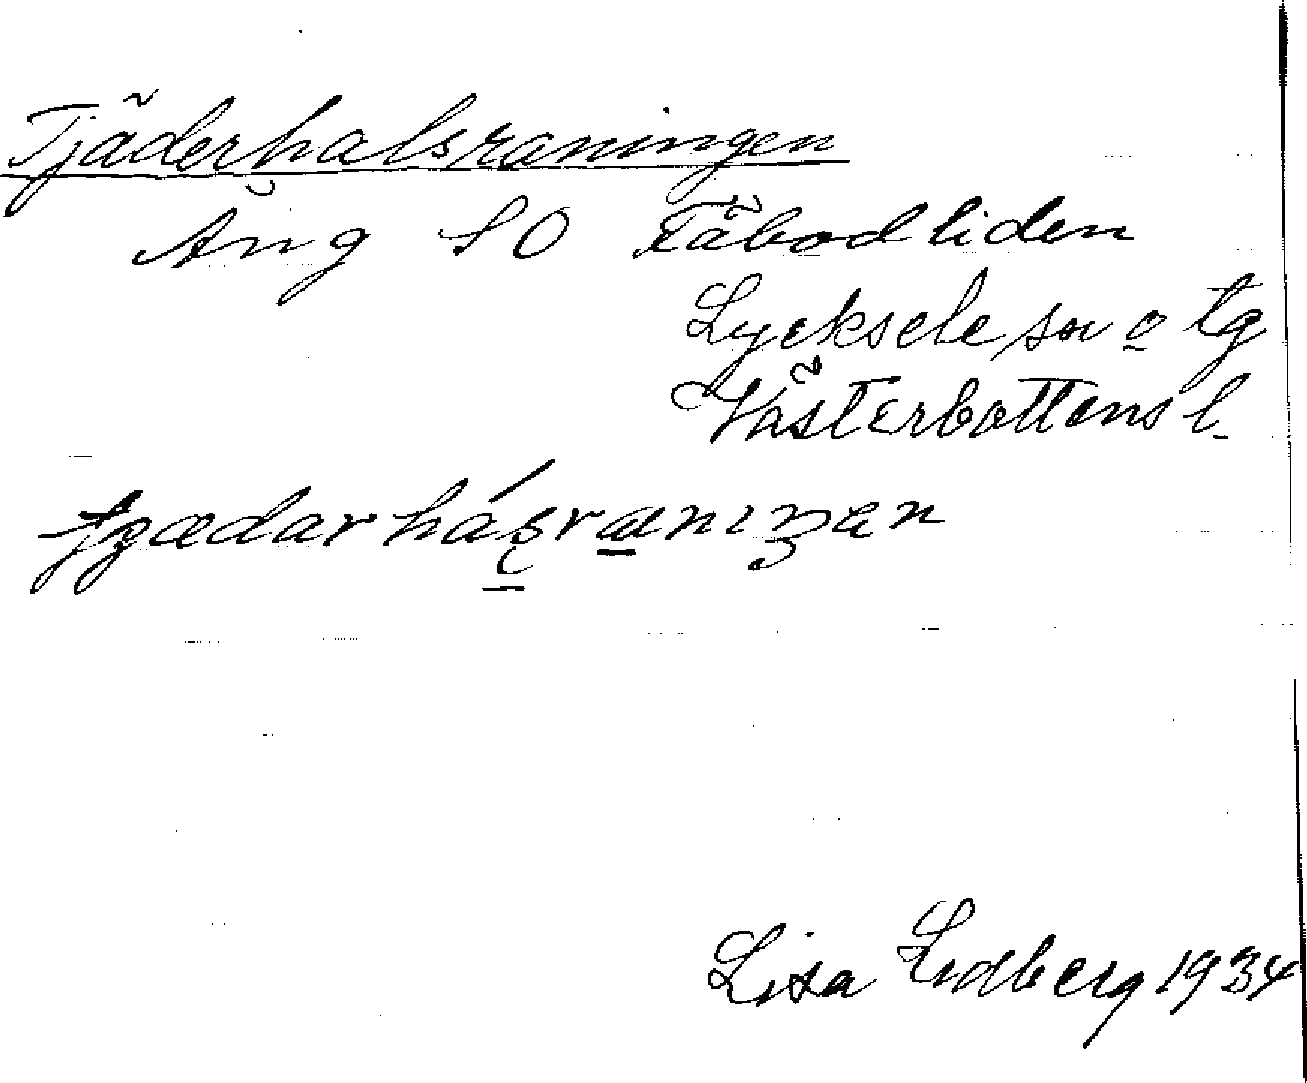 Tjäderhalsraningen
Äng SO Fäbodliden
Lycksele sn o tg
Västerbottens l.
Lisa Lidberg 1934